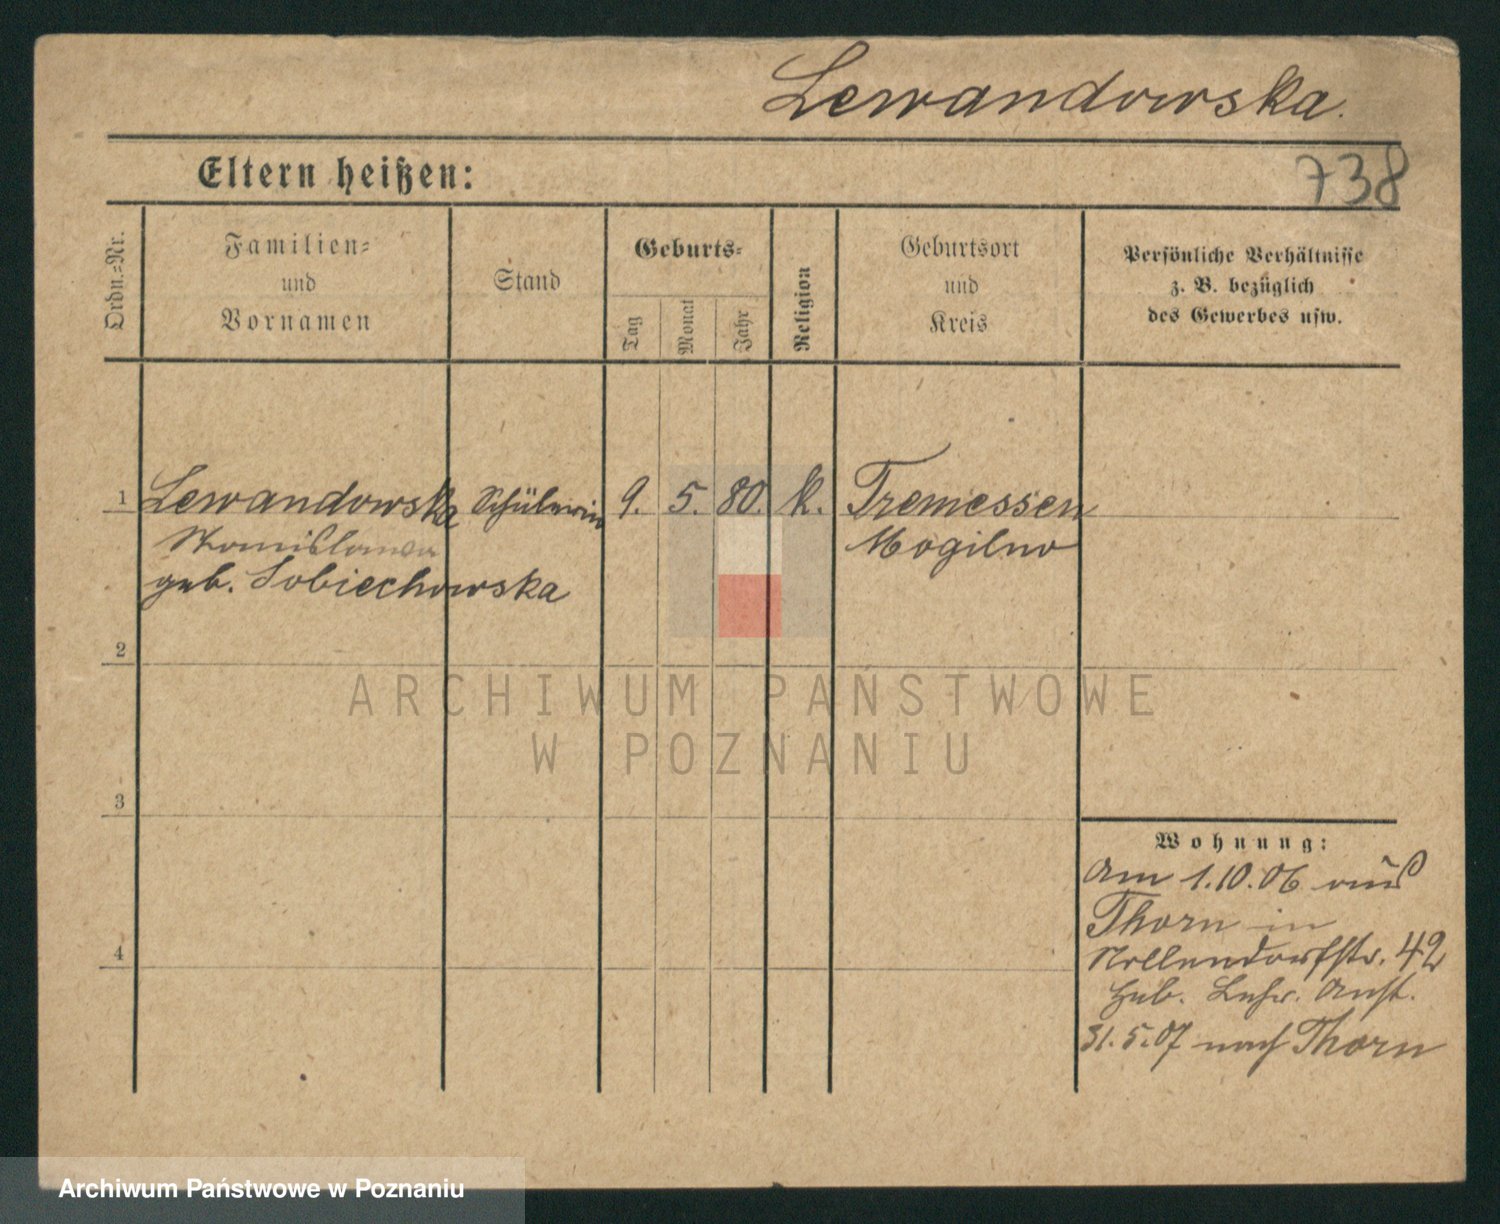 Lewandowska.
738
Eltern heißen:
Ordn.-Nr.
Familien-
und
Vornamen
Stand
Geburts-
Tag
Monat
Jahr
Religion
Geburtsort
und
Kreis
Persönliche Verhältnisse
z. B. bezüglich
des Gewerbes usw.
1 Lewandowska Schülerin 9. 5. 80. k. Tremessen
Stanislawa Mogilno
geb. Sobiechowska
2
3
4
Wohnung:
Am 1.10.06 aus
Thorn in
Nollendorfstr. 42
Heb. Lehr. Anst.
31.5.07 nach Thorn
ARCHIWUM PAŃSTWOWE
W POZNANIU
Archiwum Państwowe w Poznaniu